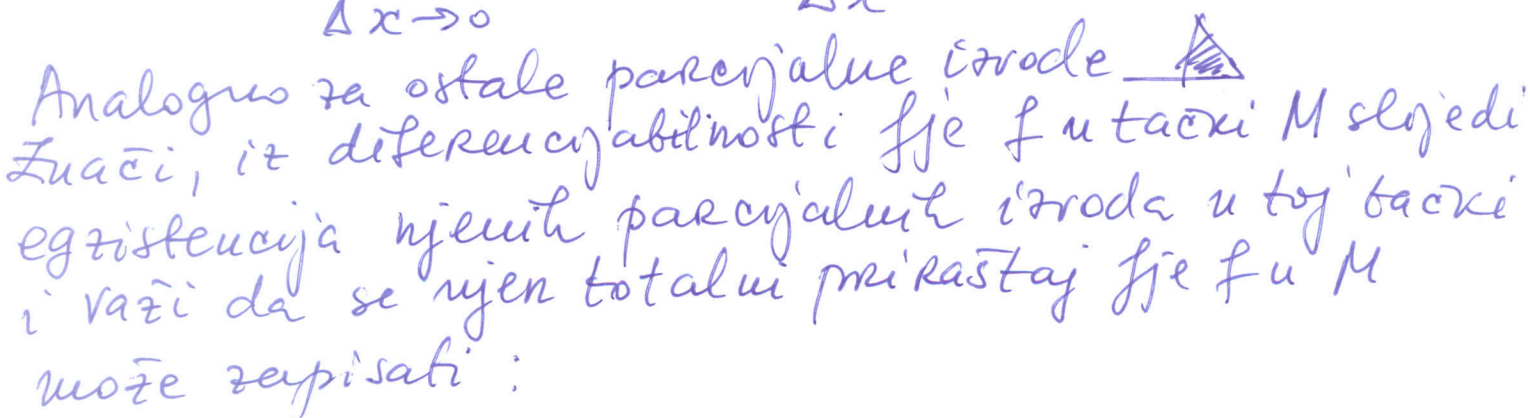 Δx→0 Δx
Analogno za ostale parcijalne izvode
Znači, iz diferencijabilnosti fje f u tački M slijedi
egzistencija njenih parcijalnih izvoda u toj tački
i važi da se njen totalni priraštaj fje f u M
može zapisati: